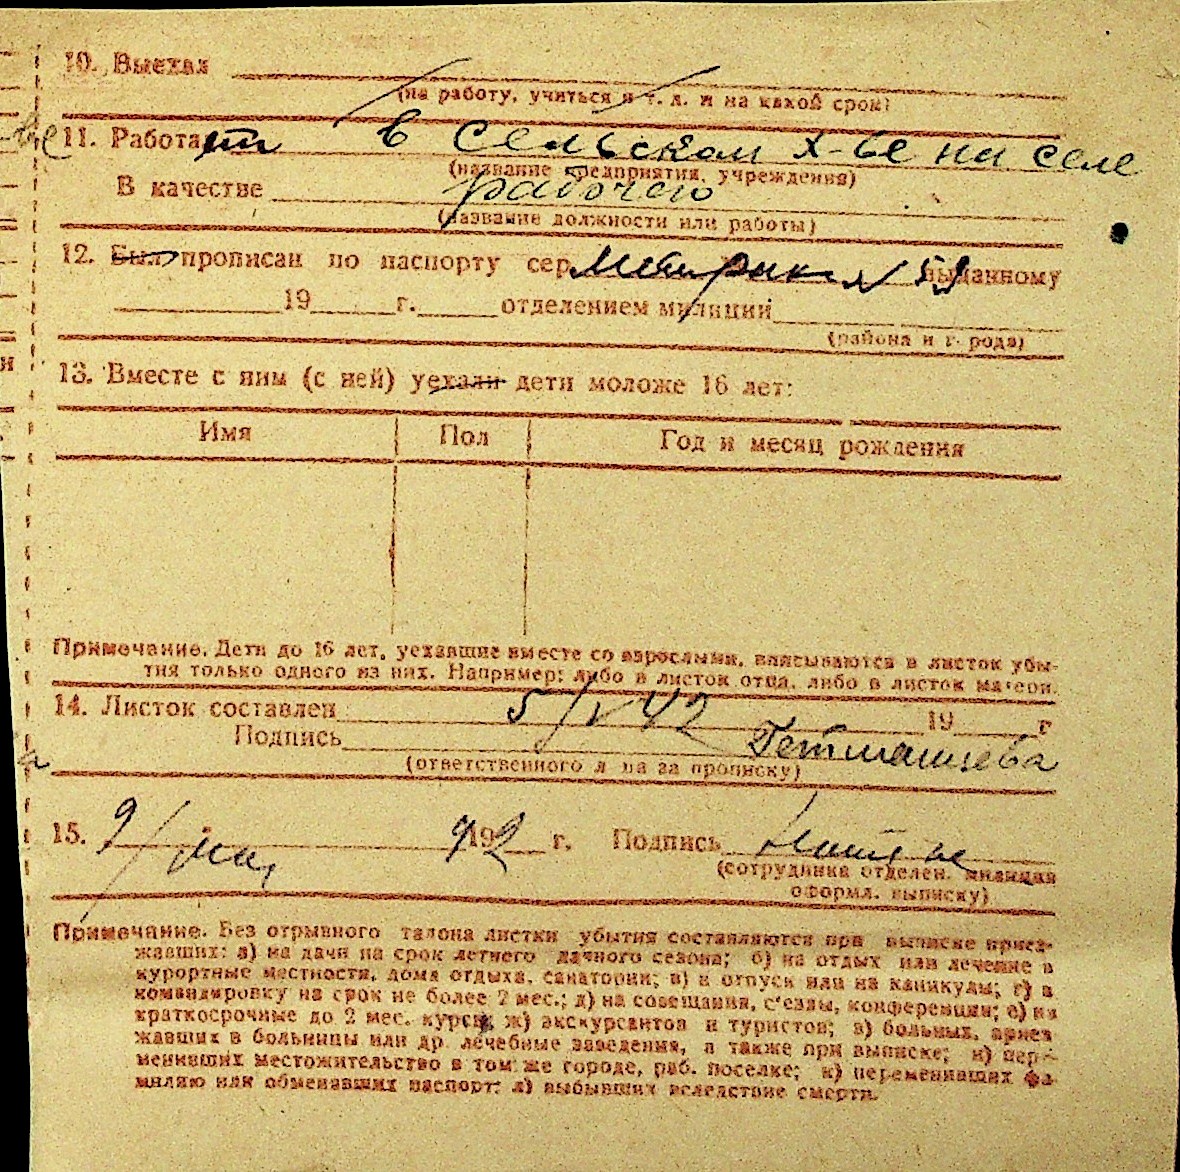 10. Выехал
(на работу, учиться и т. д. и на какой срок)
11. Работает в Сельском х-ве на селе
(название предприятия, учреждения)
В качестве рабочего
(название должности или работы)
12. Был прописан по паспорту сер. Метрики № выданному
19 г. отделением милиции
(района и города)
13. Вместе с ним (с ней) уехали дети моложе 16 лет:
Имя Пол Год и месяц рождения
Примечание. Дети до 16 лет, уехавшие вместе со взрослыми, вписываются в листок убы-
тия только одного из них. Например: либо в листок отца, либо в листок матери.
14. Листок составлен 5/V 42 19 г
Подпись
(ответственного лица за прописку)
15. 9/ мая 1942 г. Подпись
(сотрудника отделен. милиции
оформл. выписку)
Примечание. Без отрывного талона листки убытия составляются при выписке приез-
жавших: а) на дачи на срок летнего дачного сезона; б) на отдых или лечение в
курортные местности, дома отдыха, санатории; в) в отпуск или на каникулы; г) в
командировку на срок не более 2 мес.; д) на совещания, с'езды, конференции; е) на
краткосрочные до 2 мес. курсы; ж) экскурсантов и туристов; з) больных, приез
жавших в больницы или др. лечебные заведения, а также при выписке; и) пере-
менивших местожительство в том же городе, раб. поселке; к) переменивших фа-
милию или обменявших паспорт; л) выбывших вследствие смерти.